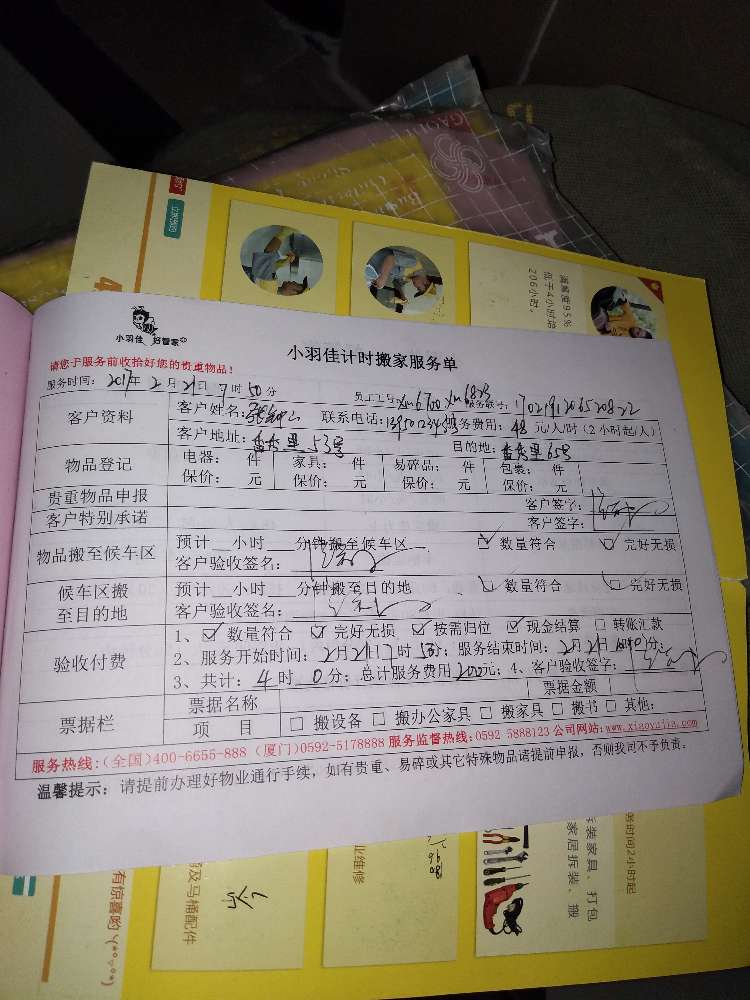 小羽佳 好管家
小羽佳计时搬家服务单
请您于服务前收拾好您的贵重物品！
服务时间：2017年2月21日7时50分
客户资料 客户姓名： 联系电话： 服务费用：48元/人/时（2小时起/人）
客户地址： 53号 目的地： 65号
物品登记 电器： 件 家具： 件 易碎品： 件 包裹： 件
保价： 元 保价： 元 保价： 元 保价： 元
贵重物品申报 客户签字：
客户特别承诺 客户签字：
物品搬至候车区 预计 小时 分钟搬至候车区 数量符合 完好无损
客户验收签名：
候车区搬至目的地 预计 小时 分钟搬至目的地 数量符合 完好无损
客户验收签名：
验收付费 1、数量符合 完好无损 按需归位 现金结算 转账汇款
2、服务开始时间：2月21日7时50分；服务结束时间：2月21日 分；
3、共计：4时0分；总计服务费用200元；4、客户验收签字：
票据栏 票据名称 票据金额
项 目 搬设备 搬办公家具 搬家具 搬书 其他：
服务热线：（全国）400-6655-888（厦门）0592-5178888 服务监督热线：0592 5888123 公司网站：www.xiaoyujia.com
温馨提示：请提前办理好物业通行手续，如有贵重、易碎或其它特殊物品请提前申报，否则我司不予负责。
满意度95%
低于4小时培
206小时。
务时间2小时起
拆装家具、打包
家居拆装、搬
业维修
及马桶配件
有惊喜哟